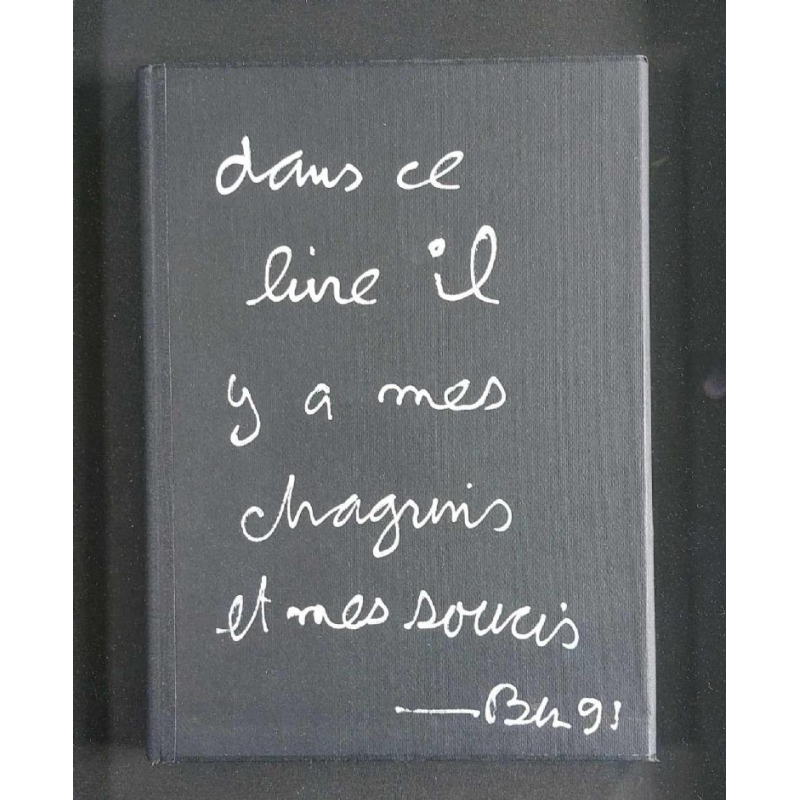 dans ce
livre il
y a mes
chagrins
et mes soucis
— Ben 91